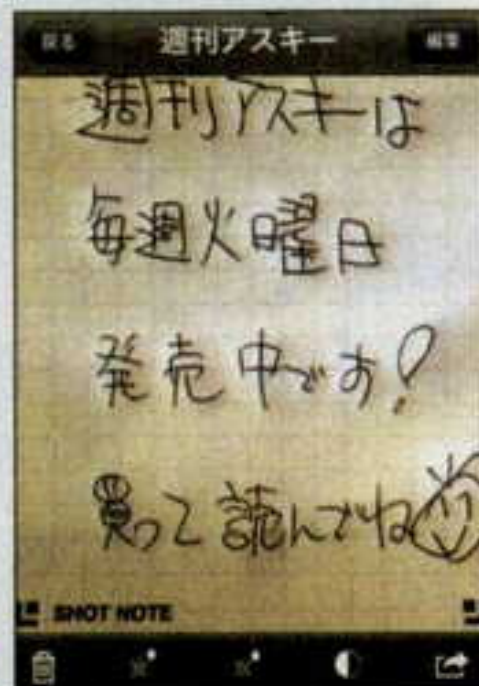 戻る 週刊アスキー 編集
週刊アスキーは
毎週火曜日
発売中です!
買って読んでね
SHOT NOTE